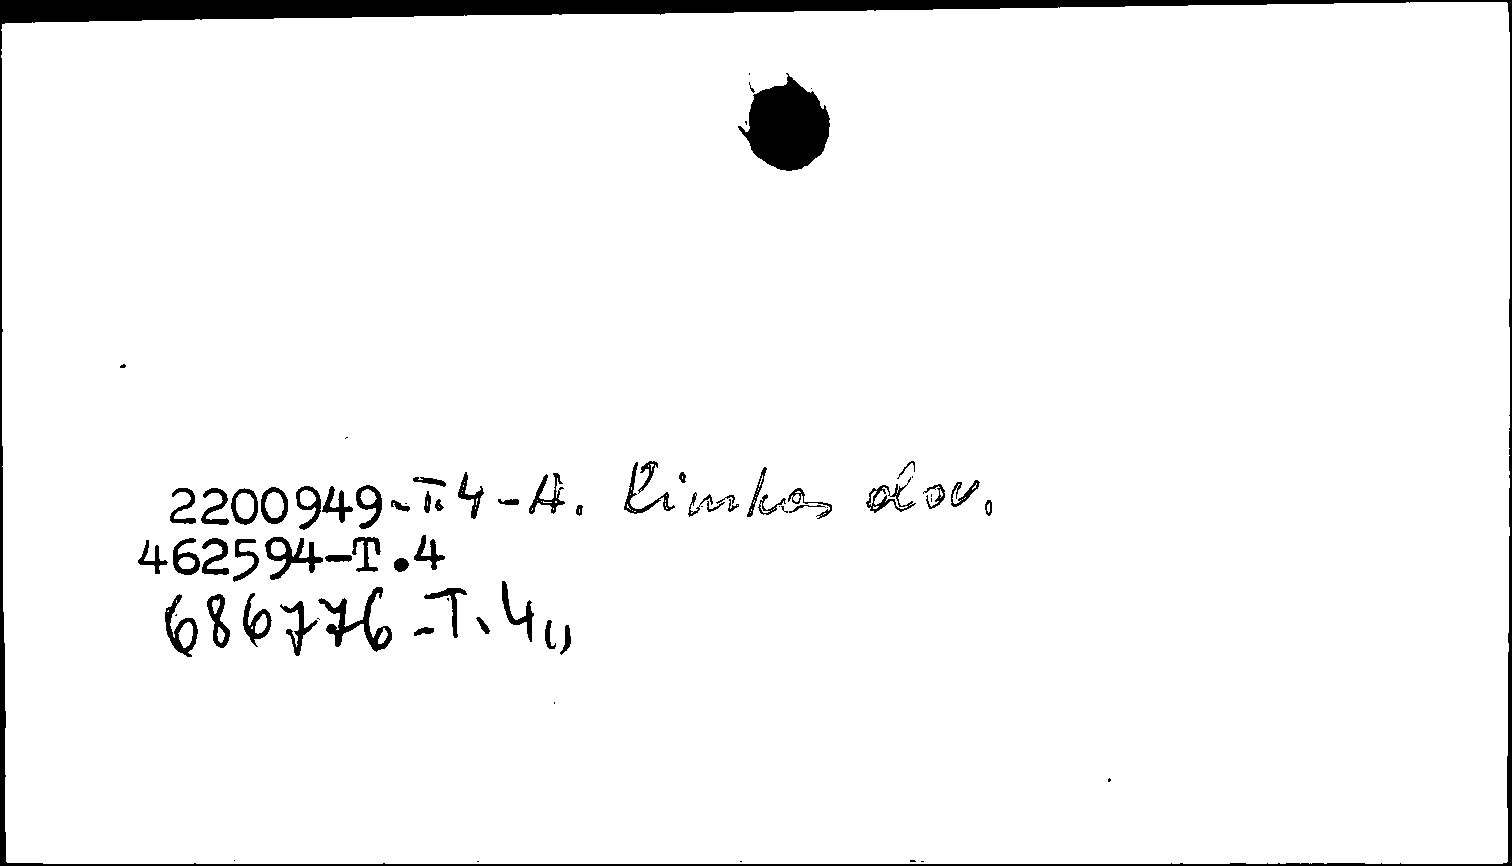 2200949-T.4-A. Rimkas dov.
462594-T.4
686776-T.4,,